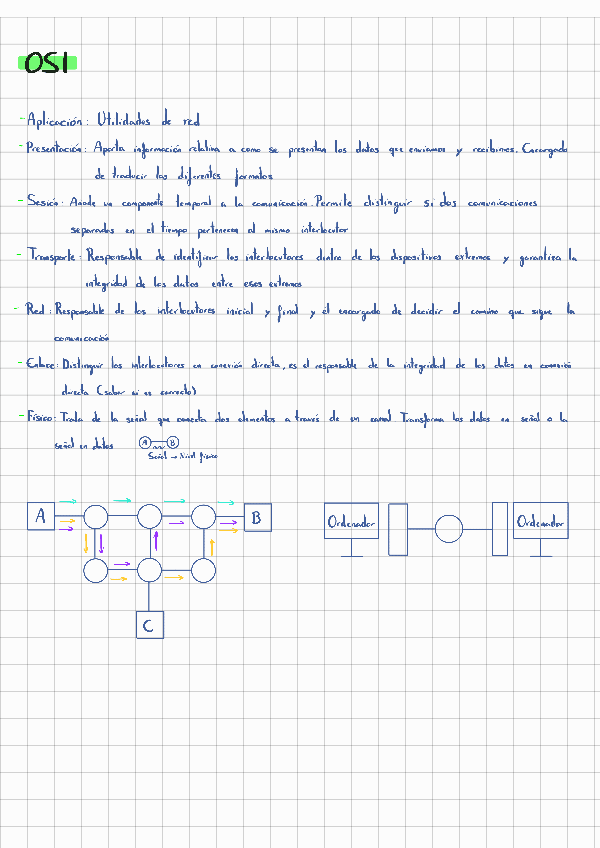 OSI
- Aplicación: Utilidades de red
- Presentación: Aporta información relativa a como se presentan los datos que enviamos y recibimos. Encargado
de traducir los diferentes formatos
- Sesión: Añade un componente temporal a la comunicación. Permite distinguir si dos comunicaciones
separadas en el tiempo pertenecen al mismo interlocutor
- Transporte: Responsable de identificar los interlocutores dentro de los dispositivos extremos y garantiza la
integridad de los datos entre esos extremos
- Red: Responsable de los interlocutores inicial y final y el encargado de decidir el camino que sigue la
comunicación
- Enlace: Distinguir los interlocutores en conexión directa, es el responsable de la integridad de los datos en conexión
directa (saber si es correcto)
- Físico: Trata de la señal que conecta dos elementos a través de un canal Transforma los datos en señal o la
señal en datos A B
Señal → Nivel físico
A B Ordenador Ordenador
C